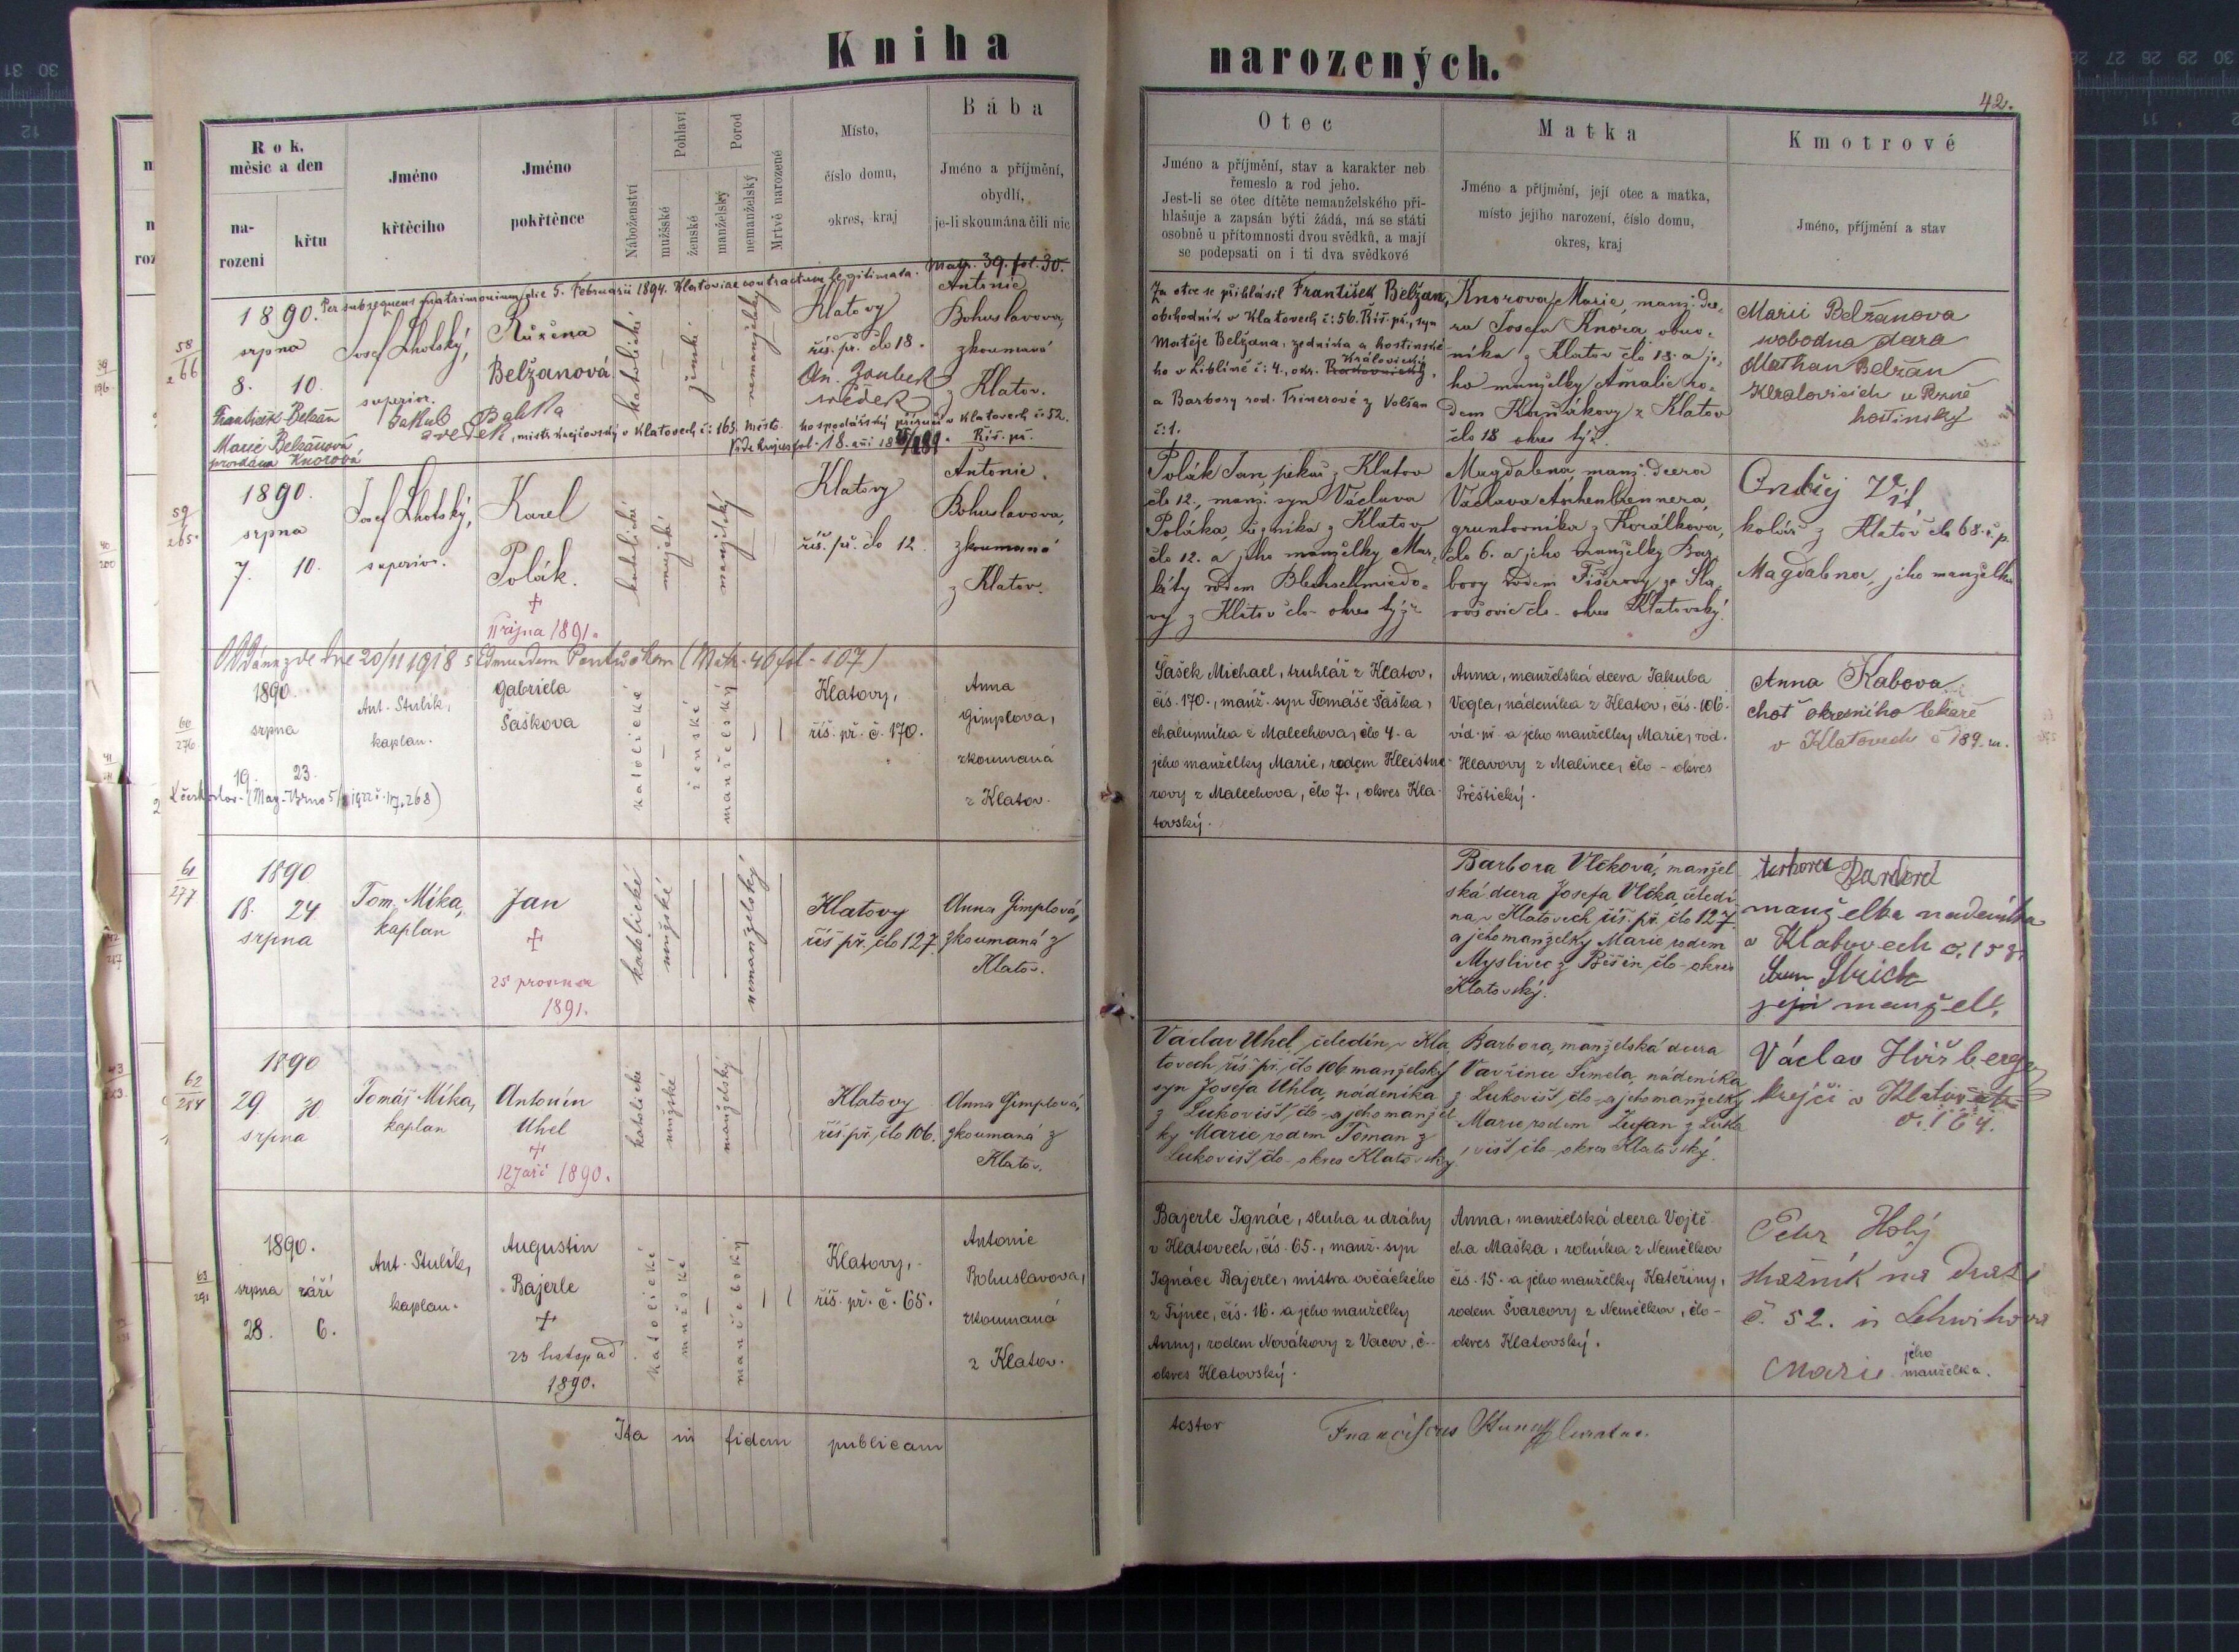 Kniha narozených.
42.
Rok,
měsíc a den
na-
rození
křtu
Jméno
křtěcího
Jméno
pokřtěnce
Náboženství
Pohlaví
mužšské
ženské
Porod
manželský
nemanželský
Mrtvě narozené
Místo,
číslo domu,
okres, kraj
Bába
Jméno a příjmění,
obydlí,
je-li skoumána čili nic
Otec
Jméno a příjmění, stav a karakter neb
řemeslo a rod jeho.
Jest-li se otec dítěte nemanželského při-
hlašuje a zapsán býti žádá, má se státi
osobně u přítomnosti dvou svědků, a mají
se podepsati on i ti dva svědkové
Matka
Jméno a příjmění, její otec a matka,
místo jejího narození, číslo domu,
okres, kraj
Kmotrové
Jméno, příjmění a stav
Per subsequens matrimonium die 5. Februarii 1894. Klatoviae contractum legitimata. Matr. 39. fol. 30.
58
266
1890.
srpna
8. 10.
Josef Lhotský,
superior.
Růžena
Belžanová
katolické
ženské
nemanželský
Klatovy
říš. př. člo 18.
svědek
Antonie
Bohuslavova,
zkoumaná
z Klatov.
František Belžan
Marie Belžanová
provdaná Knorová
Jakub
svědek, mistr krejčovský v Klatovech č: 163. město
hospodářský v Klatovech č: 52.
Říš. př.
Za otce se přihlásil František Belžan,
obchodník v Klatovech č: 56. Říš. př., syn
Matěje Belžana, zedníka a hostinské-
ho v Liblíně č: 4., okr. Královický,
a Barbory rod. Trinerové z Volšan
č: 1.
Knorova Marie, manž. dce-
ra Josefa Knora, obuv-
níka z Klatov člo 18. a je-
ho manželky Amalie ro-
dem z Klatov
člo 18 okres týž.
Marii Belžanova
svobodna dcera
Belžan
hostinský
59
265
1890.
srpna
7. 10.
Josef Lhotský,
superior.
Karel
Polák.
†
11 října 1891.
katolické
mužské
manželský
Klatovy
říš. př. člo 12.
Antonie
Bohuslavova,
zkoumaná
z Klatov.
Polák Jan, pekař z Klatov
člo 12., manž. syn Václava
Poláka, z Klatov
člo 12. a jeho manželky Mar-
kéty rodem Blechschmiedo-
vy z Klatov člo - okres týž.
Magdalena, manž. dcera
Václava Aschenbrennera,
gruntovníka z Korálkova,
člo 6. a jeho manželky Bar-
bory rodem Fišerovy ze Sla-
vošovic člo - okres Klatovský.
Ondřej Vít
kolář z Klatov člo 68. ř. p.
Magdalena, jeho manželka
Oddána zde dne 20/11 1918 s Edmundem (Matr. 46 fol. 107)
60
276
1890.
srpna
19. 23.
Ant. Stulík,
kaplan.
Gabriela
Šaškova
katolické
ženské
manželský
Klatovy,
říš. př. č. 170.
Anna
Gimplova,
zkoumaná
z Klatov.
Šašek Michael, truhlář z Klatov,
čís. 170., manž. syn Tomáše Šaška,
chalupníka z Malechova, člo 4. a
jeho manželky Marie, rodem Kleistne-
rovy z Malechova, člo 7., okres Kla-
tovský.
Anna, manželská dcera Jakuba
Vogla, nádeníka z Klatov, čís. 106.
víd. př. a jeho manželky Marie, rod.
Hlavovy z Malince, člo - okres
Přeštický.
Anna Kabova
choť okresního lékaře
v Klatovech č 189. m.
61
277
1890
18. 24
srpna
Tom. Míka,
kaplan
Jan
†
25 prosince
1891.
katolické
mužské
nemanželský
Klatovy
říš. př. člo 127.
Anna Gimplová,
zkoumaná z
Klatov.
Barbora Vlčková, manžel-
ská dcera Josefa Vlčka, čeledí-
na v Klatovech, říš. př. člo 127.
a jeho manželky Marie rodem
Myslivec z Běšin, člo - okres
Klatovský.
manželka nadeníka
v Klatovech
její manžel.
62
284
1890
29 30
srpna
Tomáš Míka,
kaplan
Antonín
Uhel
†
12 září 1890.
katolické
mužské
manželský
Klatovy
říš. př. člo 106.
Anna Gimplová,
zkoumaná z
Klatov.
Václav Uhel, čeledín v Kla-
tovech říš. př. člo 106 manželský
syn Josefa Uhla, nádeníka
z Lukovišť, člo - a jeho manžel-
ky Marie, rodem Toman z
Lukovišť, člo - okres Klatovský.
Barbora, manželská dcera
Vavřince Šimela, nádeníka
z Lukovišť, člo - a jeho manželky
Marie rodem Župan z Luko-
višť, člo - okres Klatovský.
Václav Hiršberger
krejčí v
č. 164.
63
291
1890.
srpna září
28. 6.
Ant. Stulík,
kaplan.
Augustin
Bajerle
†
23 listopad
1890.
katolické
mužské
manželský
Klatovy,
říš. př. č. 65.
Antonie
Bohuslavova,
zkoumaná
z Klatov.
Bajerle Ignác, sluha u dráhy
v Klatovech, čís. 65., manž. syn
Ignáce Bajerle, mistra ovčáckého
z Týnec, čís. 16. a jeho manželky
Anny, rodem Novákovy z Vacov, č. -
okres Klatovský.
Anna, manželská dcera Vojtě-
cha Maška, rolníka z Nemělkov
čís. 15. a jeho manželky Kateřiny,
rodem Švarcovy z Nemělkov, člo -
okres Klatovský.
Petr Holý
strážník na dráze
č. 52.
Marie jeho
manželka.
Ita in fidem publicam
testor Franciscus